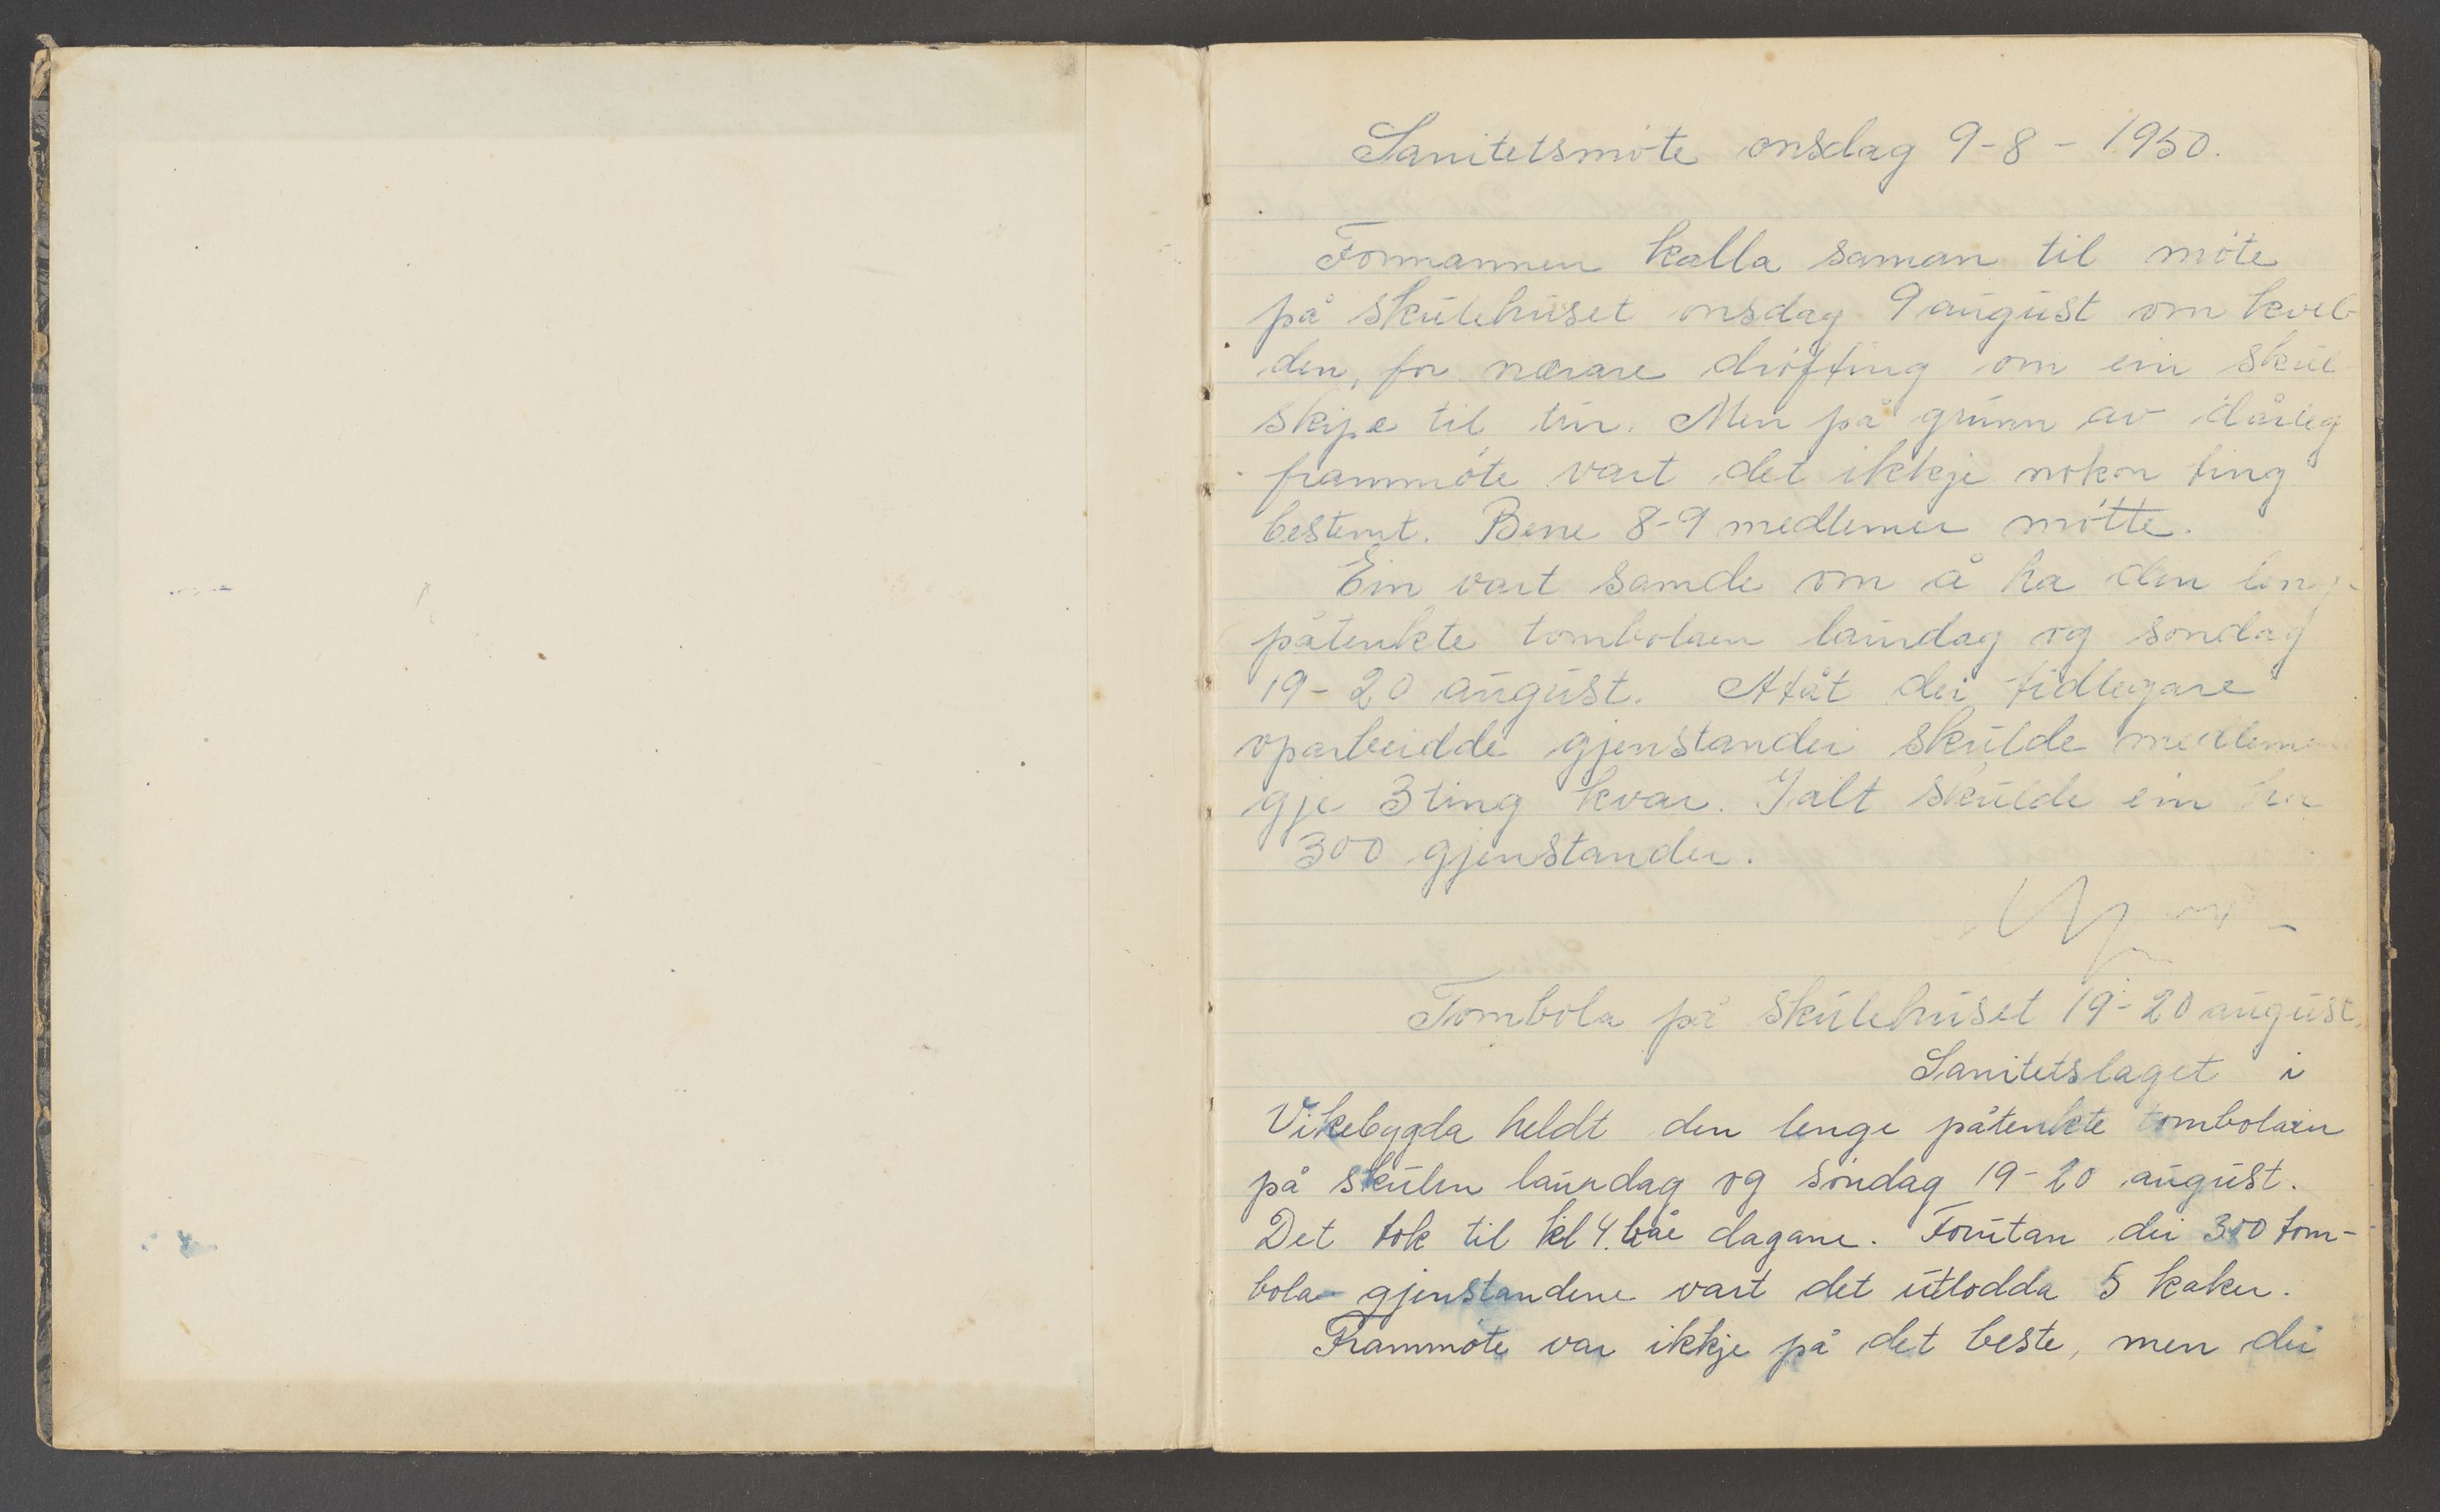 Sanitetsmöte onsdag 9-8-1950.
Formannen kalla saman til möte
på skulehuset onsdag 9 august om kvel-
den, for nærare dröfting om ein skul
skipe til tur. Men på grunn av dårleg
frammöte vart det ikkje nokon ting
bestemt. Bere 8-9 medlemer mötte.
Ein vart samde om å ha den leng-
påtenkte tombolaen laurdag og söndag
19-20 august. Attåt dei tidlegare
oparbeidde gjenstander skulde medlemene
gje 3 ting kvar. I alt skulde ein ha
300 gjenstander.
Tombola på skulehuset 19-20 august.
Sanitetslaget i
Vikebygda heldt den lenge påtenkte tombolaen
på skulen laurdag og söndag 19-20 august.
Det tok til kl 4. båe dagane. Forutan dei 300 tom-
bola-gjenstandene vart det utlodda 5 kaker.
Frammöte var ikkje på det beste, men dei